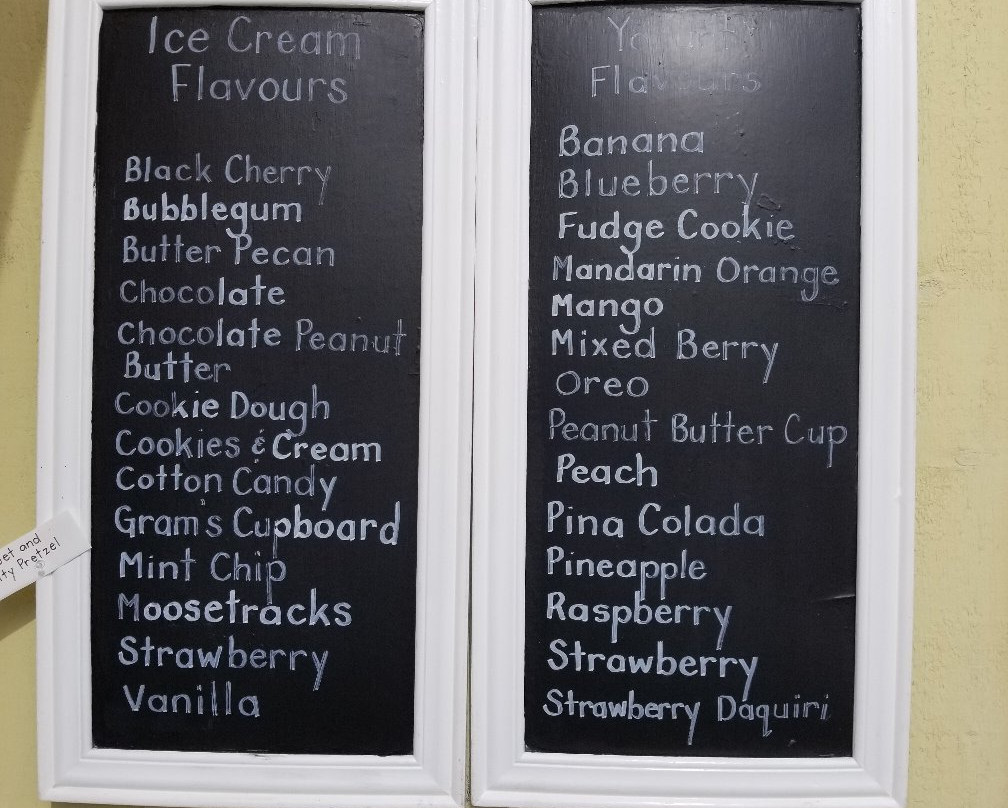 Ice Cream
Flavours
Black Cherry
Bubblegum
Butter Pecan
Chocolate
Chocolate Peanut
Butter
Cookie Dough
Cookies & Cream
Cotton Candy
Gram's Cupboard
Mint Chip
Moosetracks
Strawberry
Vanilla
Flavours
Banana
Blueberry
Fudge Cookie
Mandarin Orange
Mango
Mixed Berry
Oreo
Peanut Butter Cup
Peach
Pina Colada
Pineapple
Raspberry
Strawberry
Strawberry Daquiri
and
Pretzel